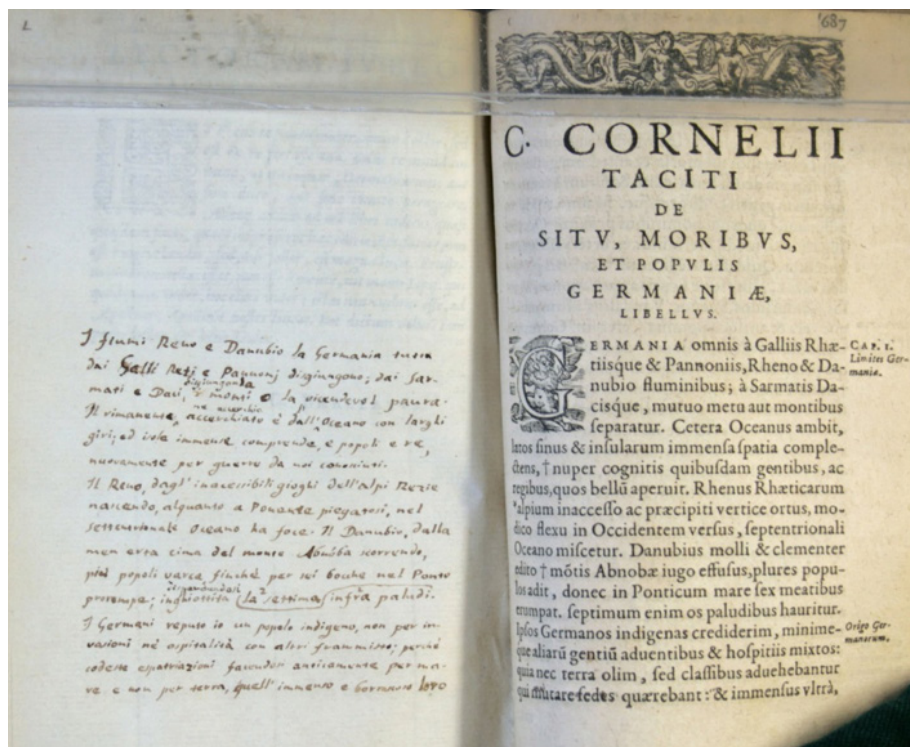 I fiumi Reno e Danubio la Germania tutta
dai Galli Reti e Pannonj disgiungono; dai Sar-
mati e Daci, disgiungonla i monti o la vicendevol paura.
Il rimanente, accerchiato è dall'Oceano con larghi
giri, ed isole immense comprende, e popoli e re,
nuovamente per guerre da noi conosciuti.
Il Reno, dagl'inaccessibili gioghi dell'alpi Rezie
nascendo, alquanto a Ponente piegatosi, nel
settentrionale Oceano ha foce. Il Danubio, dalla
men erta cima del monte Abnoba scorrendo,
più popoli varca finchè per sei bocche nel Ponto
prorompe; inghiottita la settima infra paludi.
I Germani reputo io un popolo indigeno, non per in-
vasioni nè ospitalità con altri frammisto; perchè
codeste espatriazioni facendosi anticamente per ma-
re e non per terra, quell'immenso e loro
687
C. CORNELII
TACITI
DE
SITV, MORIBVS,
ET POPVLIS
GERMANIÆ,
LIBELLVS.
GERMANIA omnis à Galliis Rhæ-
tiisque & Pannoniis, Rheno & Da-
nubio fluminibus; à Sarmatis Da-
cisque, mutuo metu aut montibus
separatur. Cetera Oceanus ambit,
latos sinus & insularum immensa spatia comple-
ctens, † nuper cognitis quibusdam gentibus, ac
regibus, quos bellũ aperuit. Rhenus Rhæticarum
Alpium inaccesso ac præcipiti vertice ortus, mo-
dico flexu in Occidentem versus, septentrionali
Oceano miscetur. Danubius molli & clementer
edito † mõtis Abnobæ iugo effusus, plures popu-
los adit, donec in Ponticum mare sex meatibus
erumpat. septimum enim os paludibus hauritur.
Ipsos Germanos indigenas crediderim, minime-
que aliarũ gentiũ aduentibus & hospitiis mixtos:
quia nec terra olim, sed classibus aduehebantur
qui mutare sedes quærebant: & immensus vltrà,
CAP. I.
Limites Ger-
maniæ.
Origo Ger-
manorum.